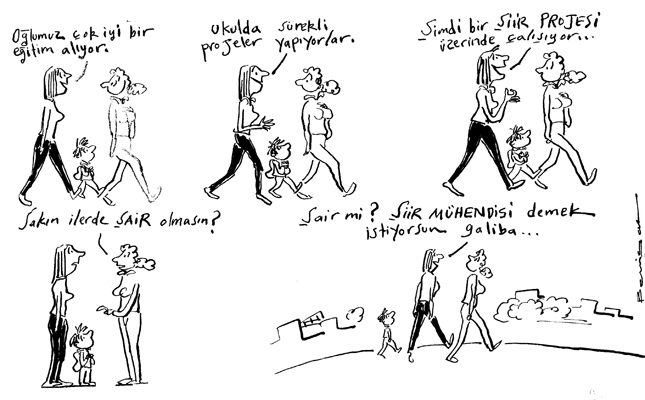 Oğlumuz çok iyi bir
eğitim alıyor.
Okulda sürekli
projeler yapıyorlar.
Şimdi bir ŞİİR PROJESİ
üzerinde çalışıyor...
Sakın ilerde ŞAİR olmasın?
Şair mi? ŞİİR MÜHENDİSİ demek
istiyorsun galiba...